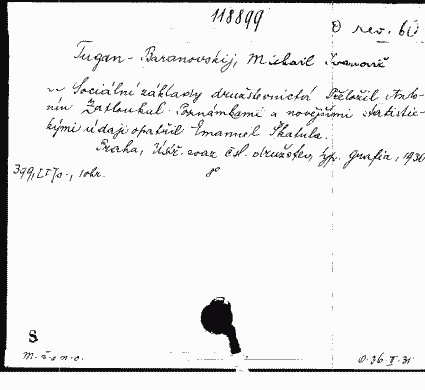 118899
O rev. 60
Tugan-Baranovskij, Michail Ivanovič
Sociální základy družstevnictví Přeložil Anto-
nín Zatloukal. Poznámkami a novějšími statistic-
kými údaji opatřil Emanuel Škatula.
Praha, Ústř. svaz čsl. družstev, typ. Grafia, 1930
399, [I] s., 1 obr. 8°
S